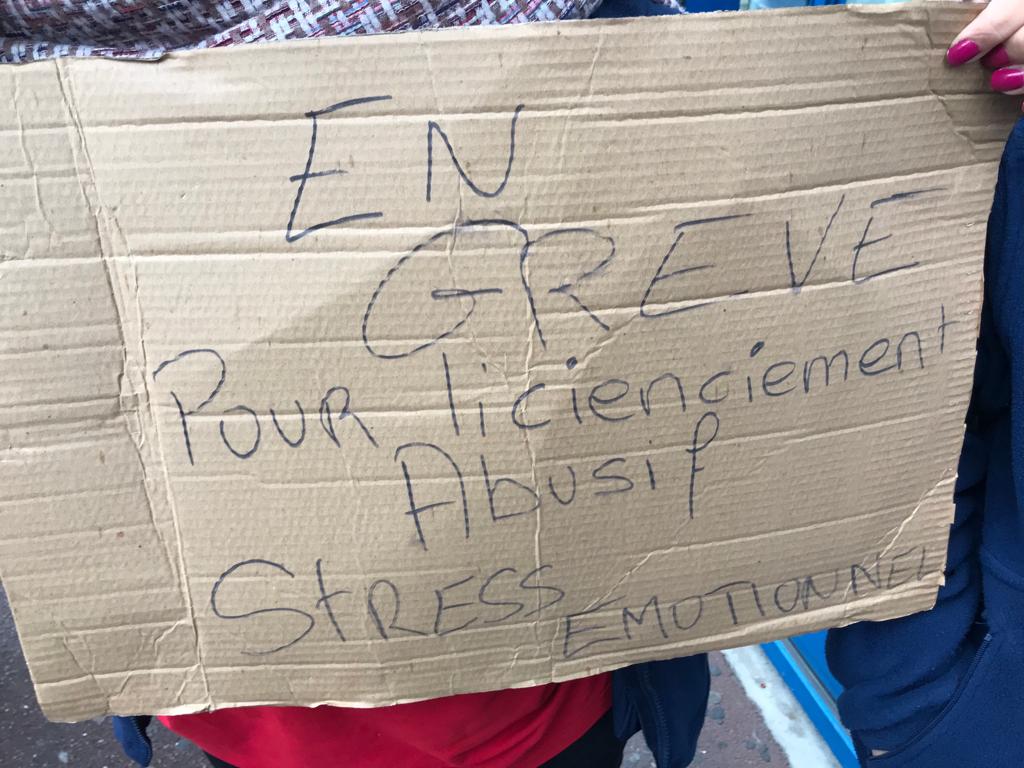 EN
GREVE
POUR licienciement
Abusif
StRESS EMOTIONNEL